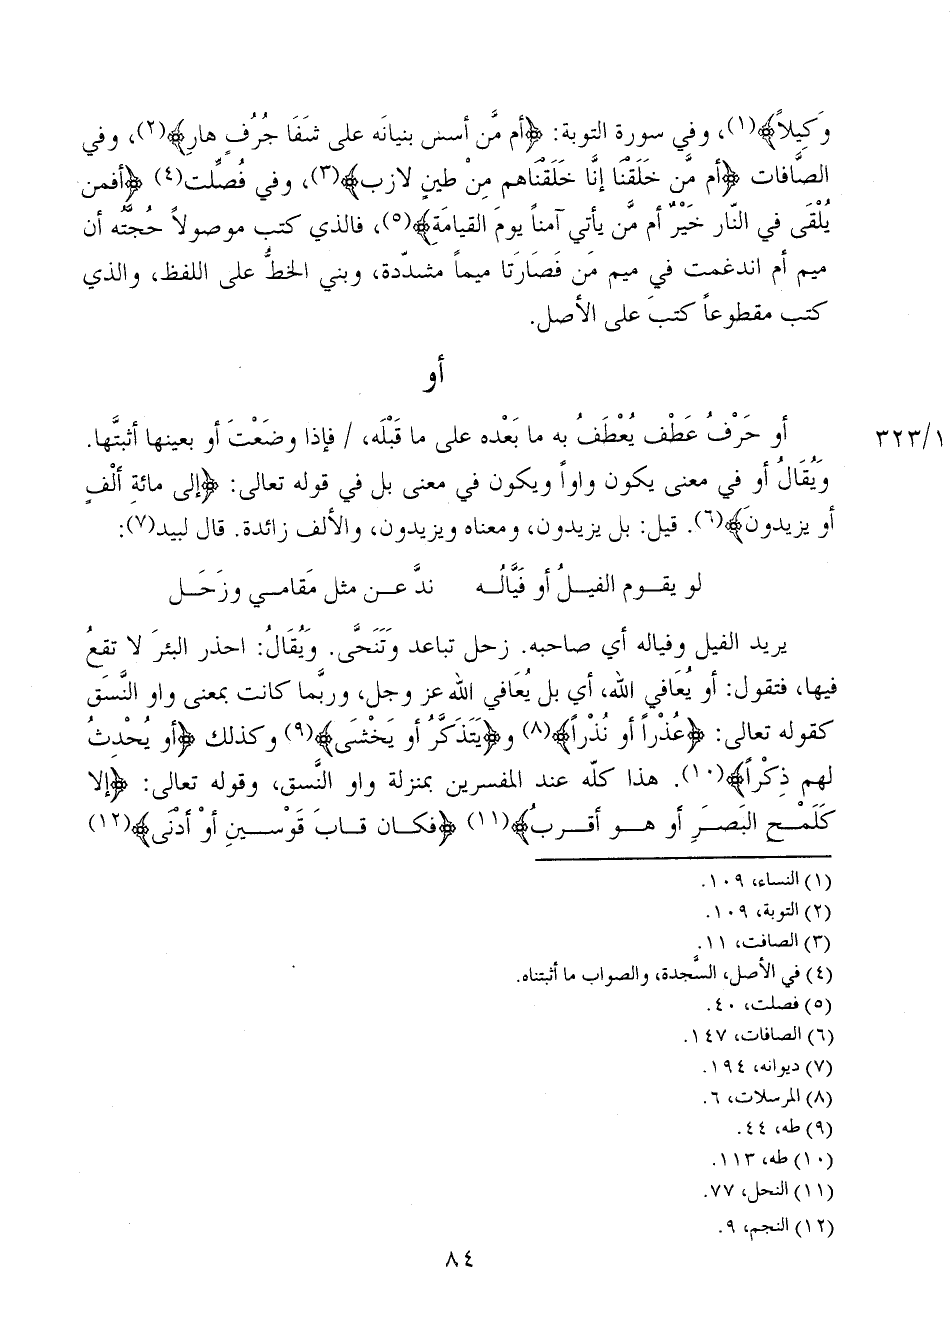 وَكِيلاً﴾(١)، وفي سورة التوبة: ﴿أم مَّن أسس بنيانَه على شَفَا جُرُفٍ هارٍ﴾(٢)، وفي
الصَّافات ﴿أم مَّن خَلَقْنَا إنَّا خَلَقْنَاهم مِنْ طينٍ لازب﴾(٣)، وفي فُصِّلت(٤) ﴿أفمن
يُلْقَى في النّار خَيْرٌ أم مَّن يأتي آمناً يومَ القيامَةِ﴾(٥)، فالذي كتب موصولاً حُجتُه أن
ميم أم اندغمت في ميم مَن فَصَارَتا ميماً مشدّدة، وبني الخطُّ على اللفظ، والذي
كتب مقطوعاً كتبَ على الأصل.
أو
أو حَرْفُ عَطْف يُعْطَفُ به ما بَعْده على ما قَبْلَه، / فإذا وضَعْتَ أو بعينها أثبتَّها. ٣٢٣/١
وَيُقَالُ أو في معنى يكون واواً ويكون في معنى بل في قوله تعالى: ﴿إلى مائةِ ألْفٍ
أو يزيدونَ﴾(٦). قيل: بل يزيدون، ومعناه ويزيدون، والألف زائدة. قال لبيد(٧):
لو يقـوم الفيـلُ أو فَيَّالُـه ندَّ عـن مثل مَقامـي وزَحَـل
يريد الفيل وفياله أي صاحبه. زحل تباعد وَتَنَحَّى. وَيُقَالُ: احذر البئرَ لا تقعُ
فيها، فتقول: أو يُعَافي الله، أي بل يُعَافي الله عز وجل، وربَّما كانت بمعنى واو النَّسَق
كقوله تعالى: ﴿عُذْراً أو نُذْراً﴾(٨) و﴿يَتَذكَّرُ أو يَخْشَى﴾(٩) وكذلك ﴿أو يُحْدِثُ
لهم ذِكْراً﴾(١٠). هذا كلّه عند المفسرين بمنزلة واو النَّسق، وقوله تعالى: ﴿إلا
كَلَمْـحِ البَصَـرِ أو هـو أقـربُ﴾(١١) ﴿فكـان قـابَ قَوْسـينِ أوْ أدْنَى﴾(١٢)
(١) النساء، ١٠٩.
(٢) التوبة، ١٠٩.
(٣) الصافت، ١١.
(٤) في الأصل، السَّجدة، والصواب ما أثبتناه.
(٥) فصلت، ٤٠.
(٦) الصافات، ١٤٧.
(٧) ديوانه، ١٩٤.
(٨) المرسلات، ٦.
(٩) طه، ٤٤.
(١٠) طه، ١١٣.
(١١) النحل، ٧٧.
(١٢) النجم، ٩.
٨٤